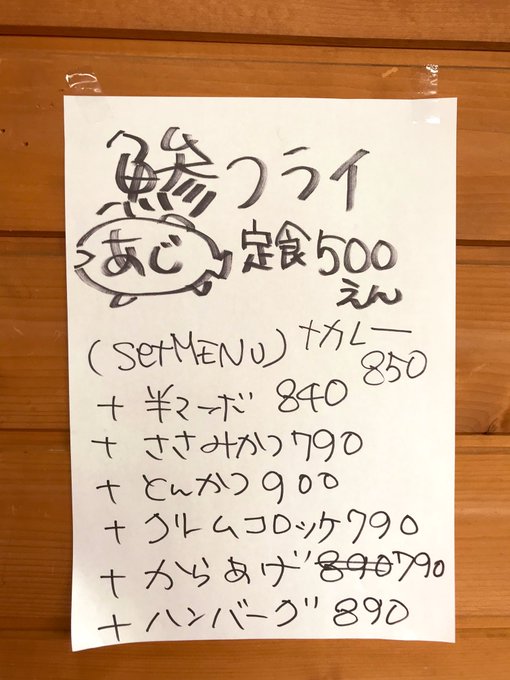 鯵フライ
あじ 定食500
えん
(SetMENU) +カレー
850
+ 半マーボ 840
+ ささみかつ790
+ とんかつ900
+ クリームコロッケ790
+ からあげ 890 790
+ ハンバーグ 890